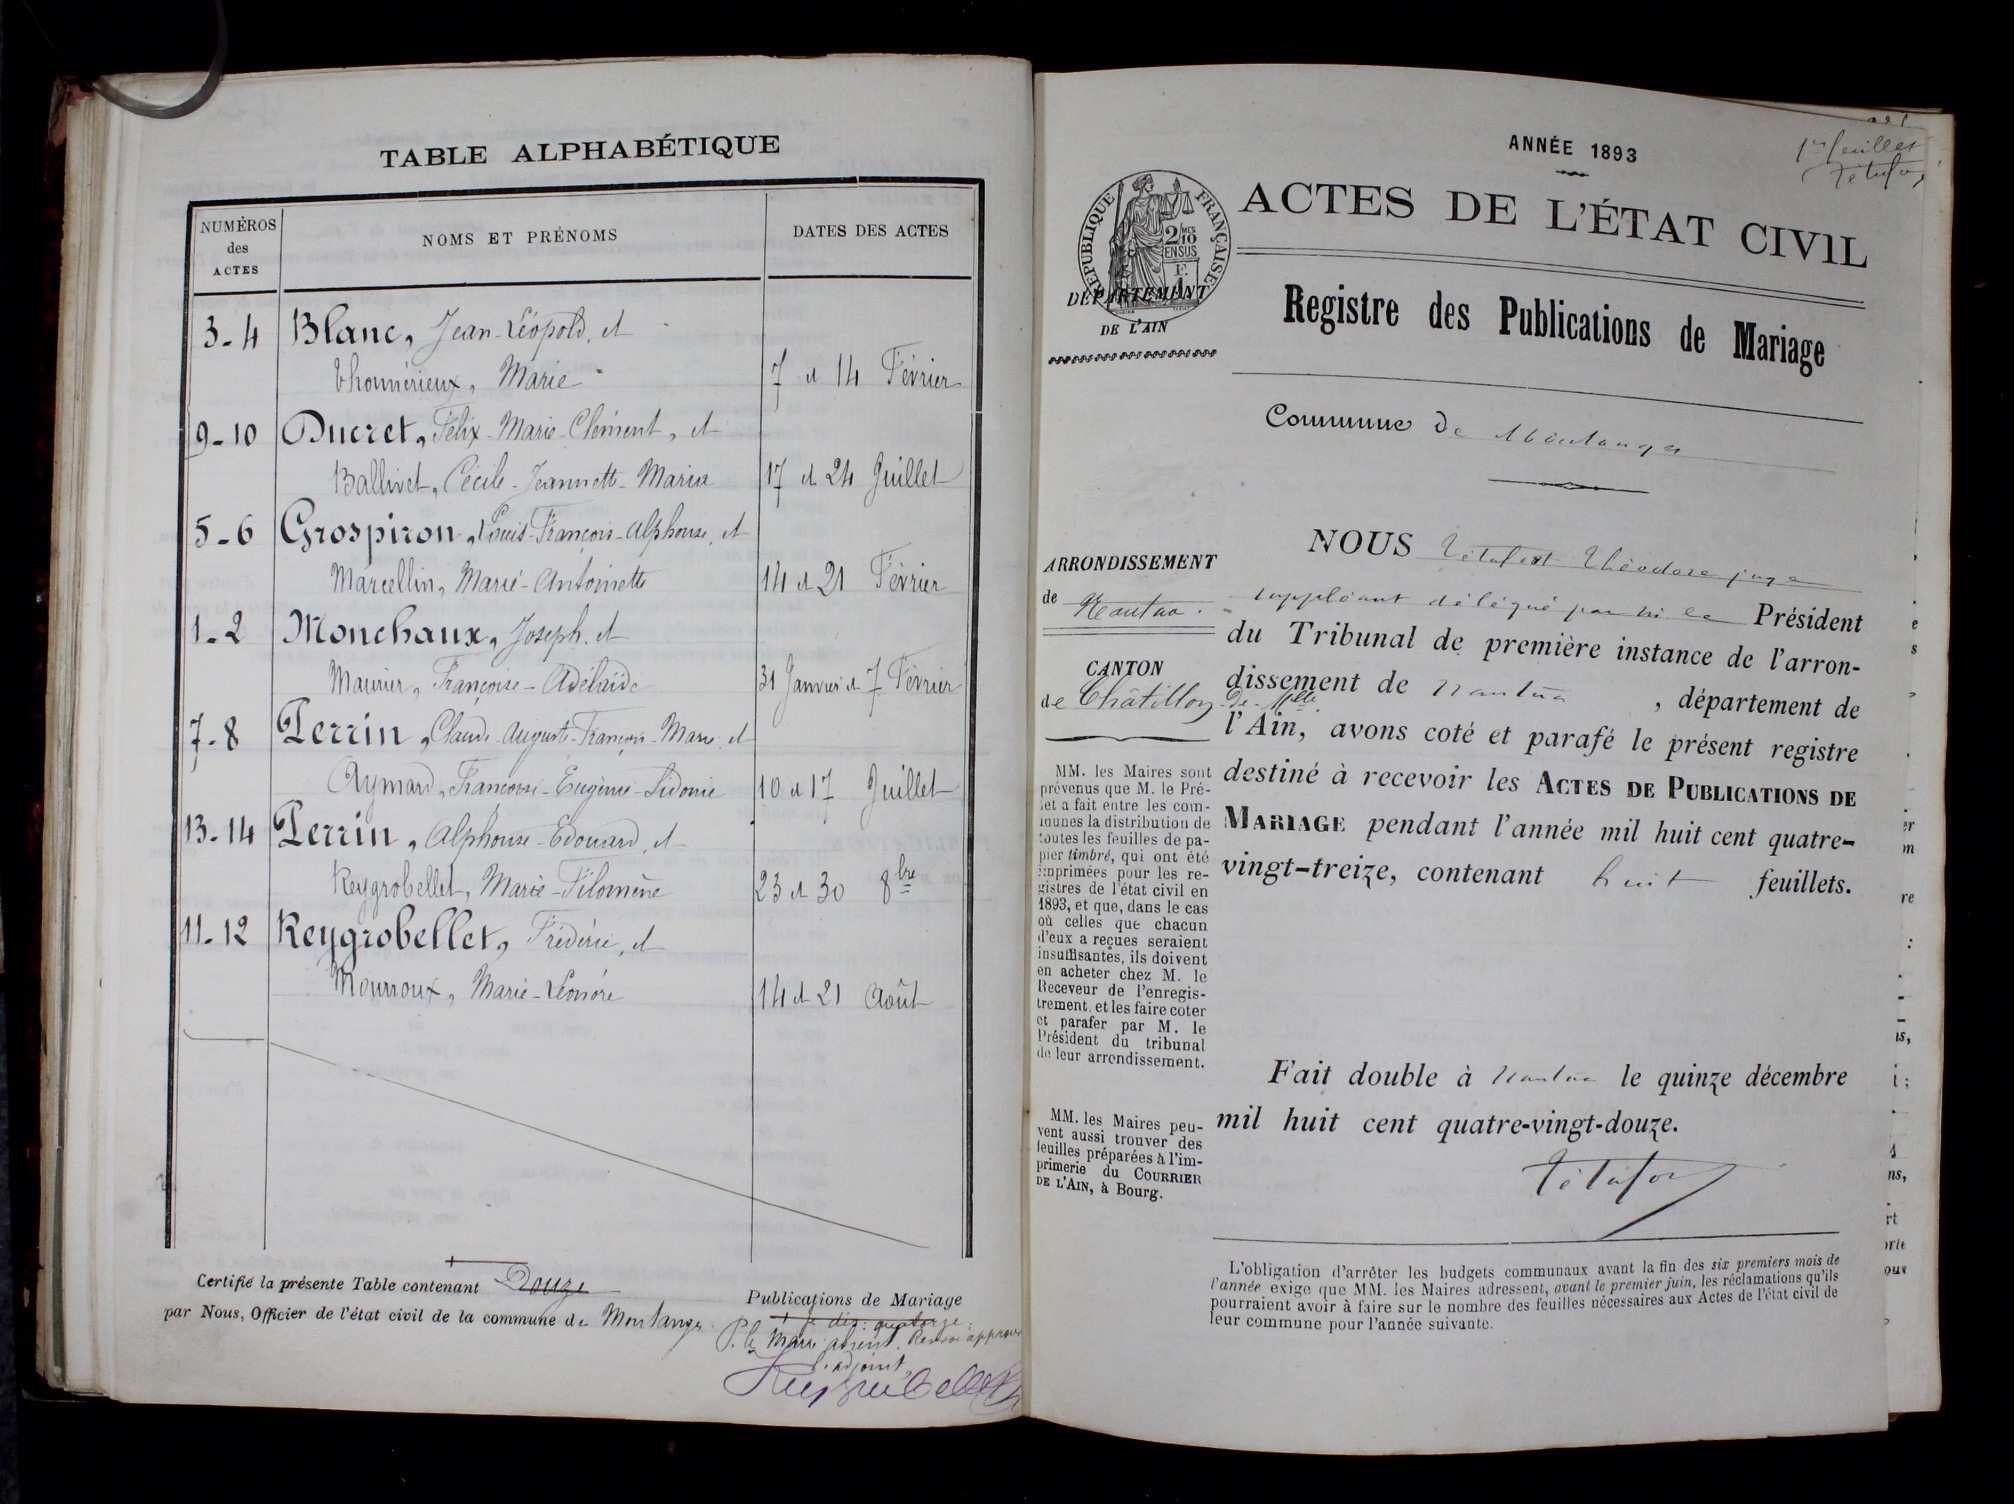 TABLE ALPHABÉTIQUE
NUMÉROS des ACTES
NOMS ET PRÉNOMS
DATES DES ACTES
3-4 Blanc, Jean-Léopold, et
Thoumérieux, Marie 7 et 14 Février
9-10 Ducret, Félix-Marie-Clément, et
Ballivet, Cécile-Jeannette-Maria 17 et 24 Juillet
5-6 Grospiron, Louis-François-Alphonse, et
Marcellin, Marie-Antoinette 14 et 21 Février
1-2 Monchaux, Joseph, et
Maurier, Françoise-Adélaïde 31 Janvier et 7 Février
7-8 Perrin, Claude-Auguste-François-Marie, et
Aymard, Françoise-Eugénie-Sidonie 10 et 17 Juillet
13-14 Perrin, Alphonse-Edouard, et
Reygrobellet, Marie-Filomène 23 et 30 8bre
11-12 Reygrobellet, Frédéric, et
Mourroux, Marie-Léonore 14 et 21 Août
Certifié la présente Table contenant Douze
Publications de Mariage
par Nous, Officier de l'état civil de la commune de Montanges
P. le Maire absent. Renvoi approuvé
l'adjoint,
Reygrobellet
1er feuillet
Tétafort
ANNÉE 1893
ACTES DE L'ÉTAT CIVIL
RÉPUBLIQUE FRANÇAISE
2/10MES EN SUS
DÉPARTEMENT
DE L'AIN
Registre des Publications de Mariage
Commune de Montanges
NOUS Tétafort Théodore juge
suppléant délégué par Mr le Président
du Tribunal de première instance de l'arron-
dissement de Nantua, département de
l'Ain, avons coté et parafé le présent registre
destiné à recevoir les ACTES DE PUBLICATIONS DE
MARIAGE pendant l'année mil huit cent quatre-
vingt-treize, contenant huit feuillets.
ARRONDISSEMENT
de Nantua.
CANTON
de Châtillon-de-Mlle
MM. les Maires sont
prévenus que M. le Pré-
fet a fait entre les com-
munes la distribution de
toutes les feuilles de pa-
pier timbré, qui ont été
imprimées pour les re-
gistres de l'état civil en
1893, et que, dans le cas
où celles que chacun
d'eux a reçues seraient
insuffisantes, ils doivent
en acheter chez M. le
Receveur de l'enregis-
trement et les faire coter
et parafer par M. le
Président du tribunal
de leur arrondissement.
MM. les Maires peu-
vent aussi trouver des
feuilles préparées à l'im-
primerie du COURRIER
DE L'AIN, à Bourg.
Fait double à Nantua le quinze décembre
mil huit cent quatre-vingt-douze.
Tétafort
L'obligation d'arrêter les budgets communaux avant la fin des six premiers mois de
l'année exige que MM. les Maires adressent, avant le premier juin, les réclamations qu'ils
pourraient avoir à faire sur le nombre des feuilles nécessaires aux Actes de l'état civil de
leur commune pour l'année suivante.